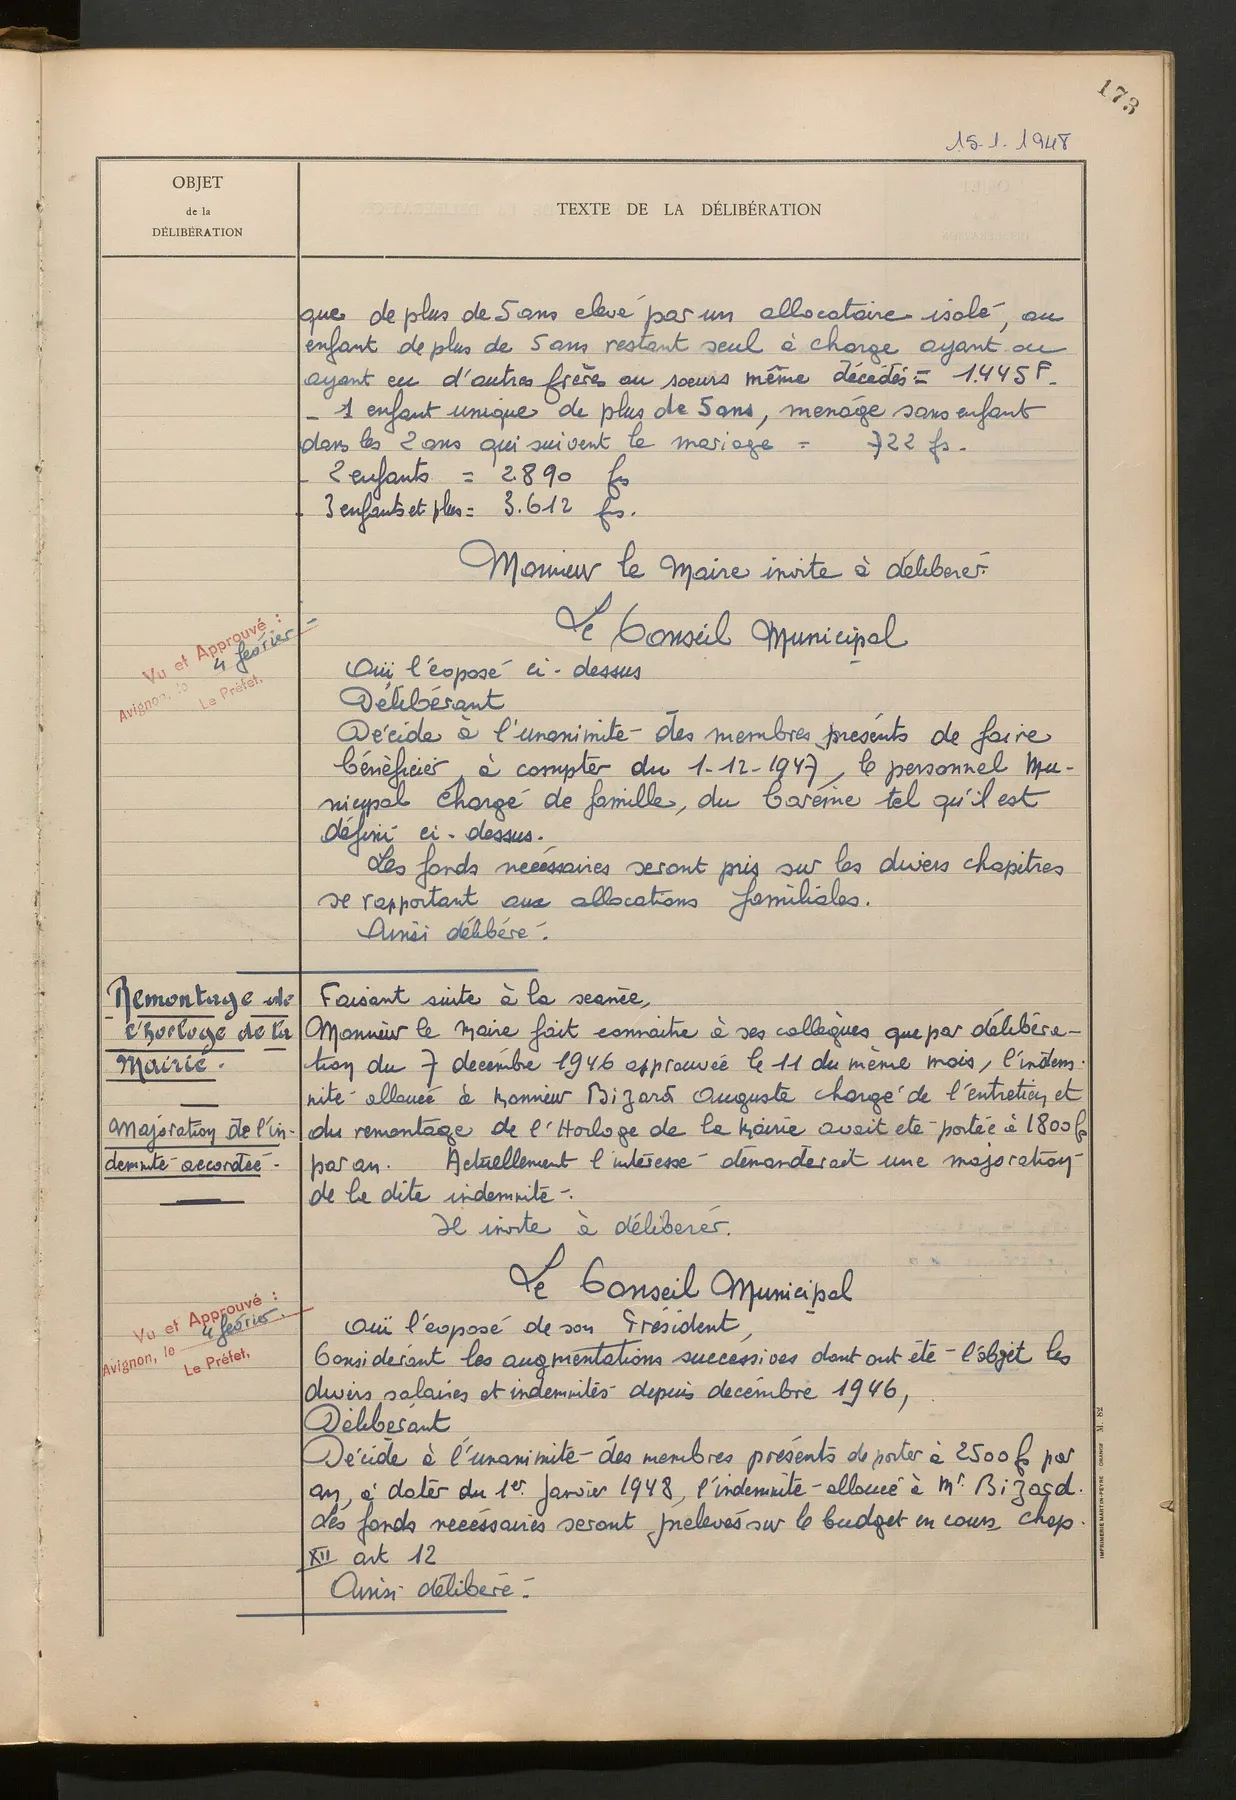 173
15.1.1948
OBJET
de la
DÉLIBÉRATION
TEXTE DE LA DÉLIBÉRATION
que de plus de 5 ans elevé par un allocataire isolé, ou
enfant de plus de 5 ans restant seul à charge ayant ou
ayant eu d'autres frères ou sœurs même décédés = 1.445 F.
- 1 enfant unique de plus de 5 ans, menage sans enfant
dans les 2 ans qui suivent le mariage = 722 fs.
- 2 enfants = 2.890 fs
- 3 enfants et plus = 3.612 fs.
Monsieur le Maire invite à déliberer.
Le Conseil Municipal
Vu et Approuvé :
Avignon, le 4 février
Le Préfet,
Ouï l'exposé ci-dessus
Délibérant
Décide à l'unanimité des membres présents de faire
bénéficier, à compter du 1-12-1947, le personnel Mu-
nicipal chargé de famille, du barème tel qu'il est
défini ci-dessus.
Les fonds necessaires seront pris sur les divers chapitres
se rapportant aux allocations familiales.
Ainsi délibéré.
Remontage de
l'horloge de la
Mairie.
Majoration de l'in-
demnité accordée.
Faisant suite à la seance,
Monsieur le Maire fait connaitre à ses collègues que par délibéra-
tion du 7 decembre 1946 approuvée le 11 du même mois, l'indem-
nité allouée à Monsieur Bizard Auguste chargé de l'entretien et
du remontage de l'Horloge de la Mairie avait été portée à 1800 f
par an. Actuellement l'intéressé demanderait une majoration
de la dite indemnité.
Il invite à déliberer.
Le Conseil Municipal
Vu et Approuvé :
Avignon, le 4 février.
Le Préfet,
Ouï l'exposé de son Président,
Considerant les augmentations successives dont ont été l'objet les
divers salaires et indemnités depuis decembre 1946,
Déliberant
Décide à l'unanimité des membres présents de porter à 2500 f par
an, à dater du 1er Janvier 1948, l'indemnité allouée à Mr Bizard.
Les fonds necessaires seront prelevés sur le budget en cours chap.
XII art 12
Ainsi délibéré.
IMPRIMERIE MARTIN-PEYRE ORANGE M. 82